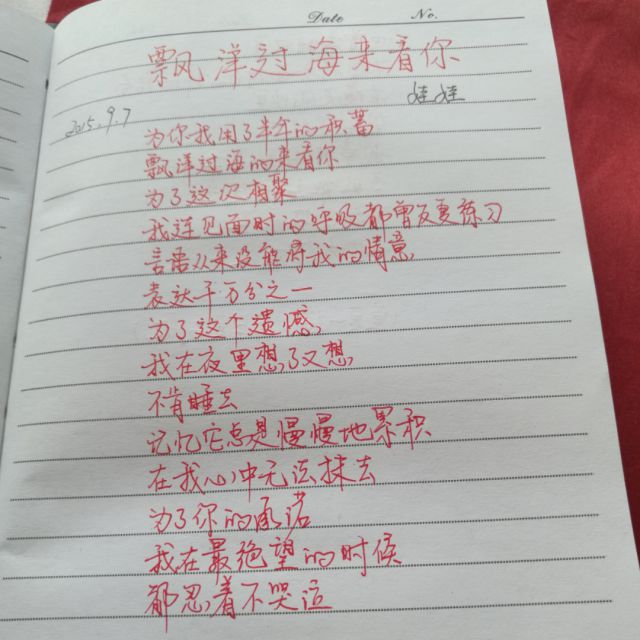 Date No.
飘洋过海来看你
娃娃
2015.9.7
为你我用了半年的积蓄
飘洋过海的来看你
为了这次相聚
我连见面时的呼吸都曾反复练习
言语从来没能将我的情意
表达千万分之一
为了这个遗憾
我在夜里想了又想
不肯睡去
记忆它总是慢慢地累积
在我心中无法抹去
为了你的承诺
我在最绝望的时候
都忍着不哭泣